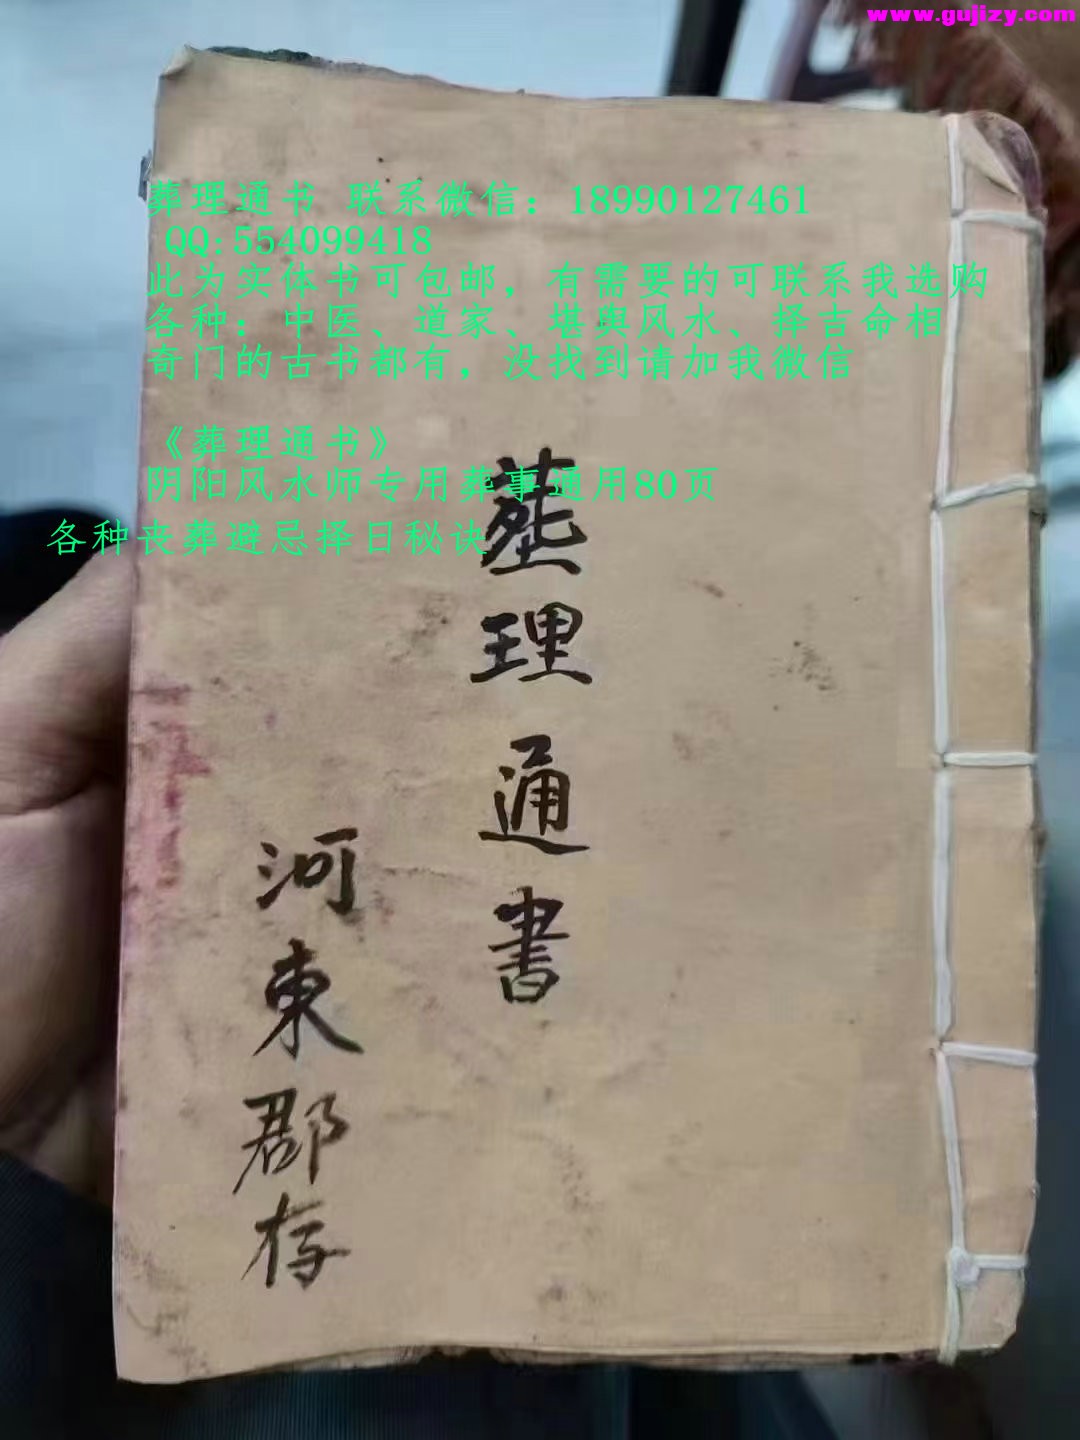 www.gujizy.com
葬理通书 联系微信：18990127461
QQ:554099418
此为实体书可包邮，有需要的可联系我选购
各种：中医、道家、堪舆风水、择吉命相
奇门的古书都有，没找到请加我微信
《葬理通书》
阴阳风水师专用葬事通用80页
各种丧葬避忌择日秘诀
葬理通書
河東郡存